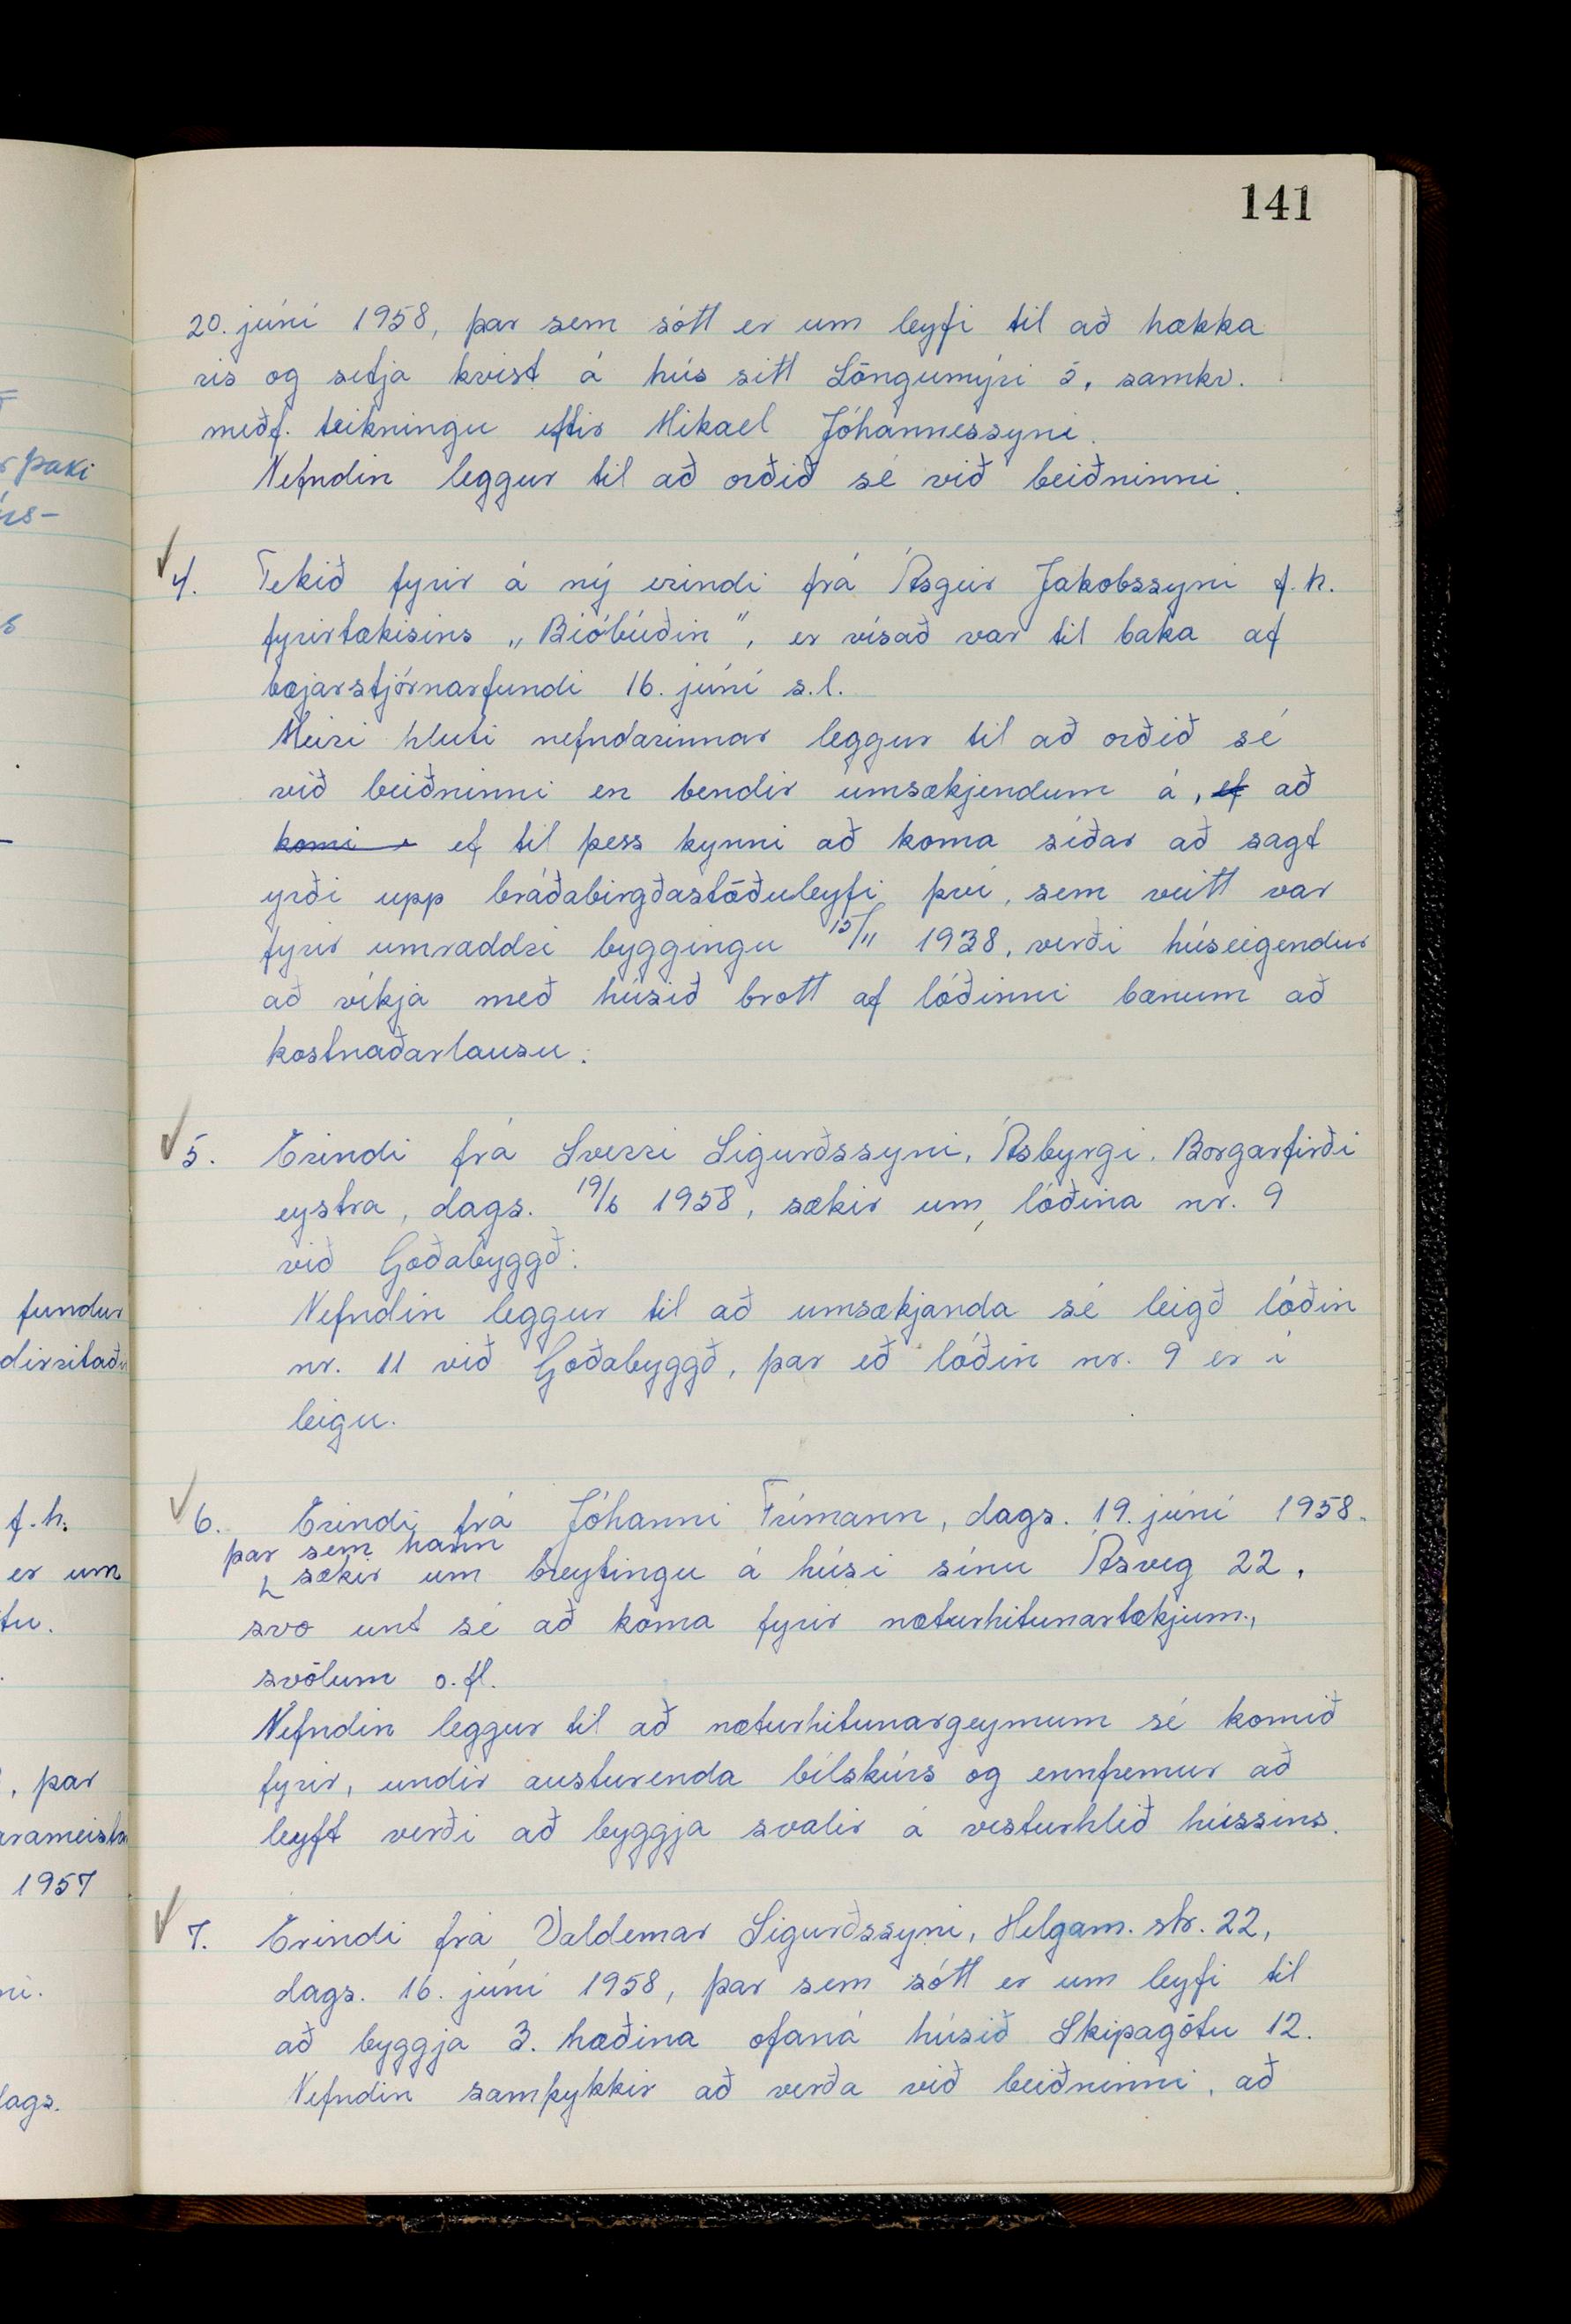 141
20. júní 1958, þar sem sótt er um leyfi til að hækka
ris og setja kvist á hús sitt Löngumýri 5, samkv.
meðf. teikningu eftir Mikael Jóhannessyni.
Nefndin leggur til að orðið sé við beiðninni.
4. Tekið fyrir á ný erindi frá Ásgeir Jakobssyni f.h.
fyrirtækisins „Bióbúðin", er vísað var til baka af
bæjarstjórnarfundi 16. júní s.l.
Meiri hluti nefndarinnar leggur til að orðið sé
við beiðninni en bendir umsækjendum á, ef að
komi ef til þess kynni að koma síðar að sagt
yrði upp bráðabirgðastöðuleyfi því, sem veitt var
fyrir umræddri byggingu 15/11 1938, verði húseigendur
að víkja með húsið brott af lóðinni bænum að
kostnaðarlausu.
5. Erindi frá Sverri Sigurðssyni, Ásbyrgi, Borgarfirði
eystra, dags. 19/6 1958, sækir um lóðina nr. 9
við Goðabyggð.
Nefndin leggur til að umsækjanda sé leigð lóðin
nr. 11 við Goðabyggð, þar eð lóðin nr. 9 er í
leigu.
6. Erindi frá Jóhanni Frímann, dags. 19. júní 1958.
þar sem hann
sækir um breytingu á húsi sínu Ásveg 22,
svo unt sé að koma fyrir næturhitunartækjum,
svölum o.fl.
Nefndin leggur til að næturhitunargeymum sé komið
fyrir, undir austurenda bílskúrs og ennfremur að
leyft verði að byggja svalir á vesturhlið hússins.
7. Erindi frá Valdemar Sigurðssyni, Helgam. str. 22,
dags. 16. júní 1958, þar sem sótt er um leyfi til
að byggja 3. hæðina ofaná húsið Skipagötu 12.
Nefndin samþykkir að verða við beiðninni, að
þaki
fundur
f.h.
er um
þar
1957
dags.